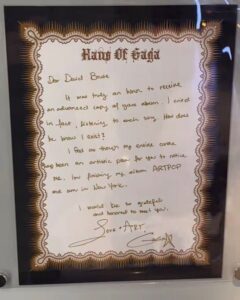 Haus Of Gaga
Dear David Bowie
It was truly an honor to receive
an advanced copy of your album. I cried
in face, listening to each song. How does
he know I exist?
I feel as though my entire career
has been an artistic plea for you to notice
me. I'm finishing my album ARTPOP
and am in New York.
I would be so grateful
and honored to meet you.
Love + ART,
Gaga